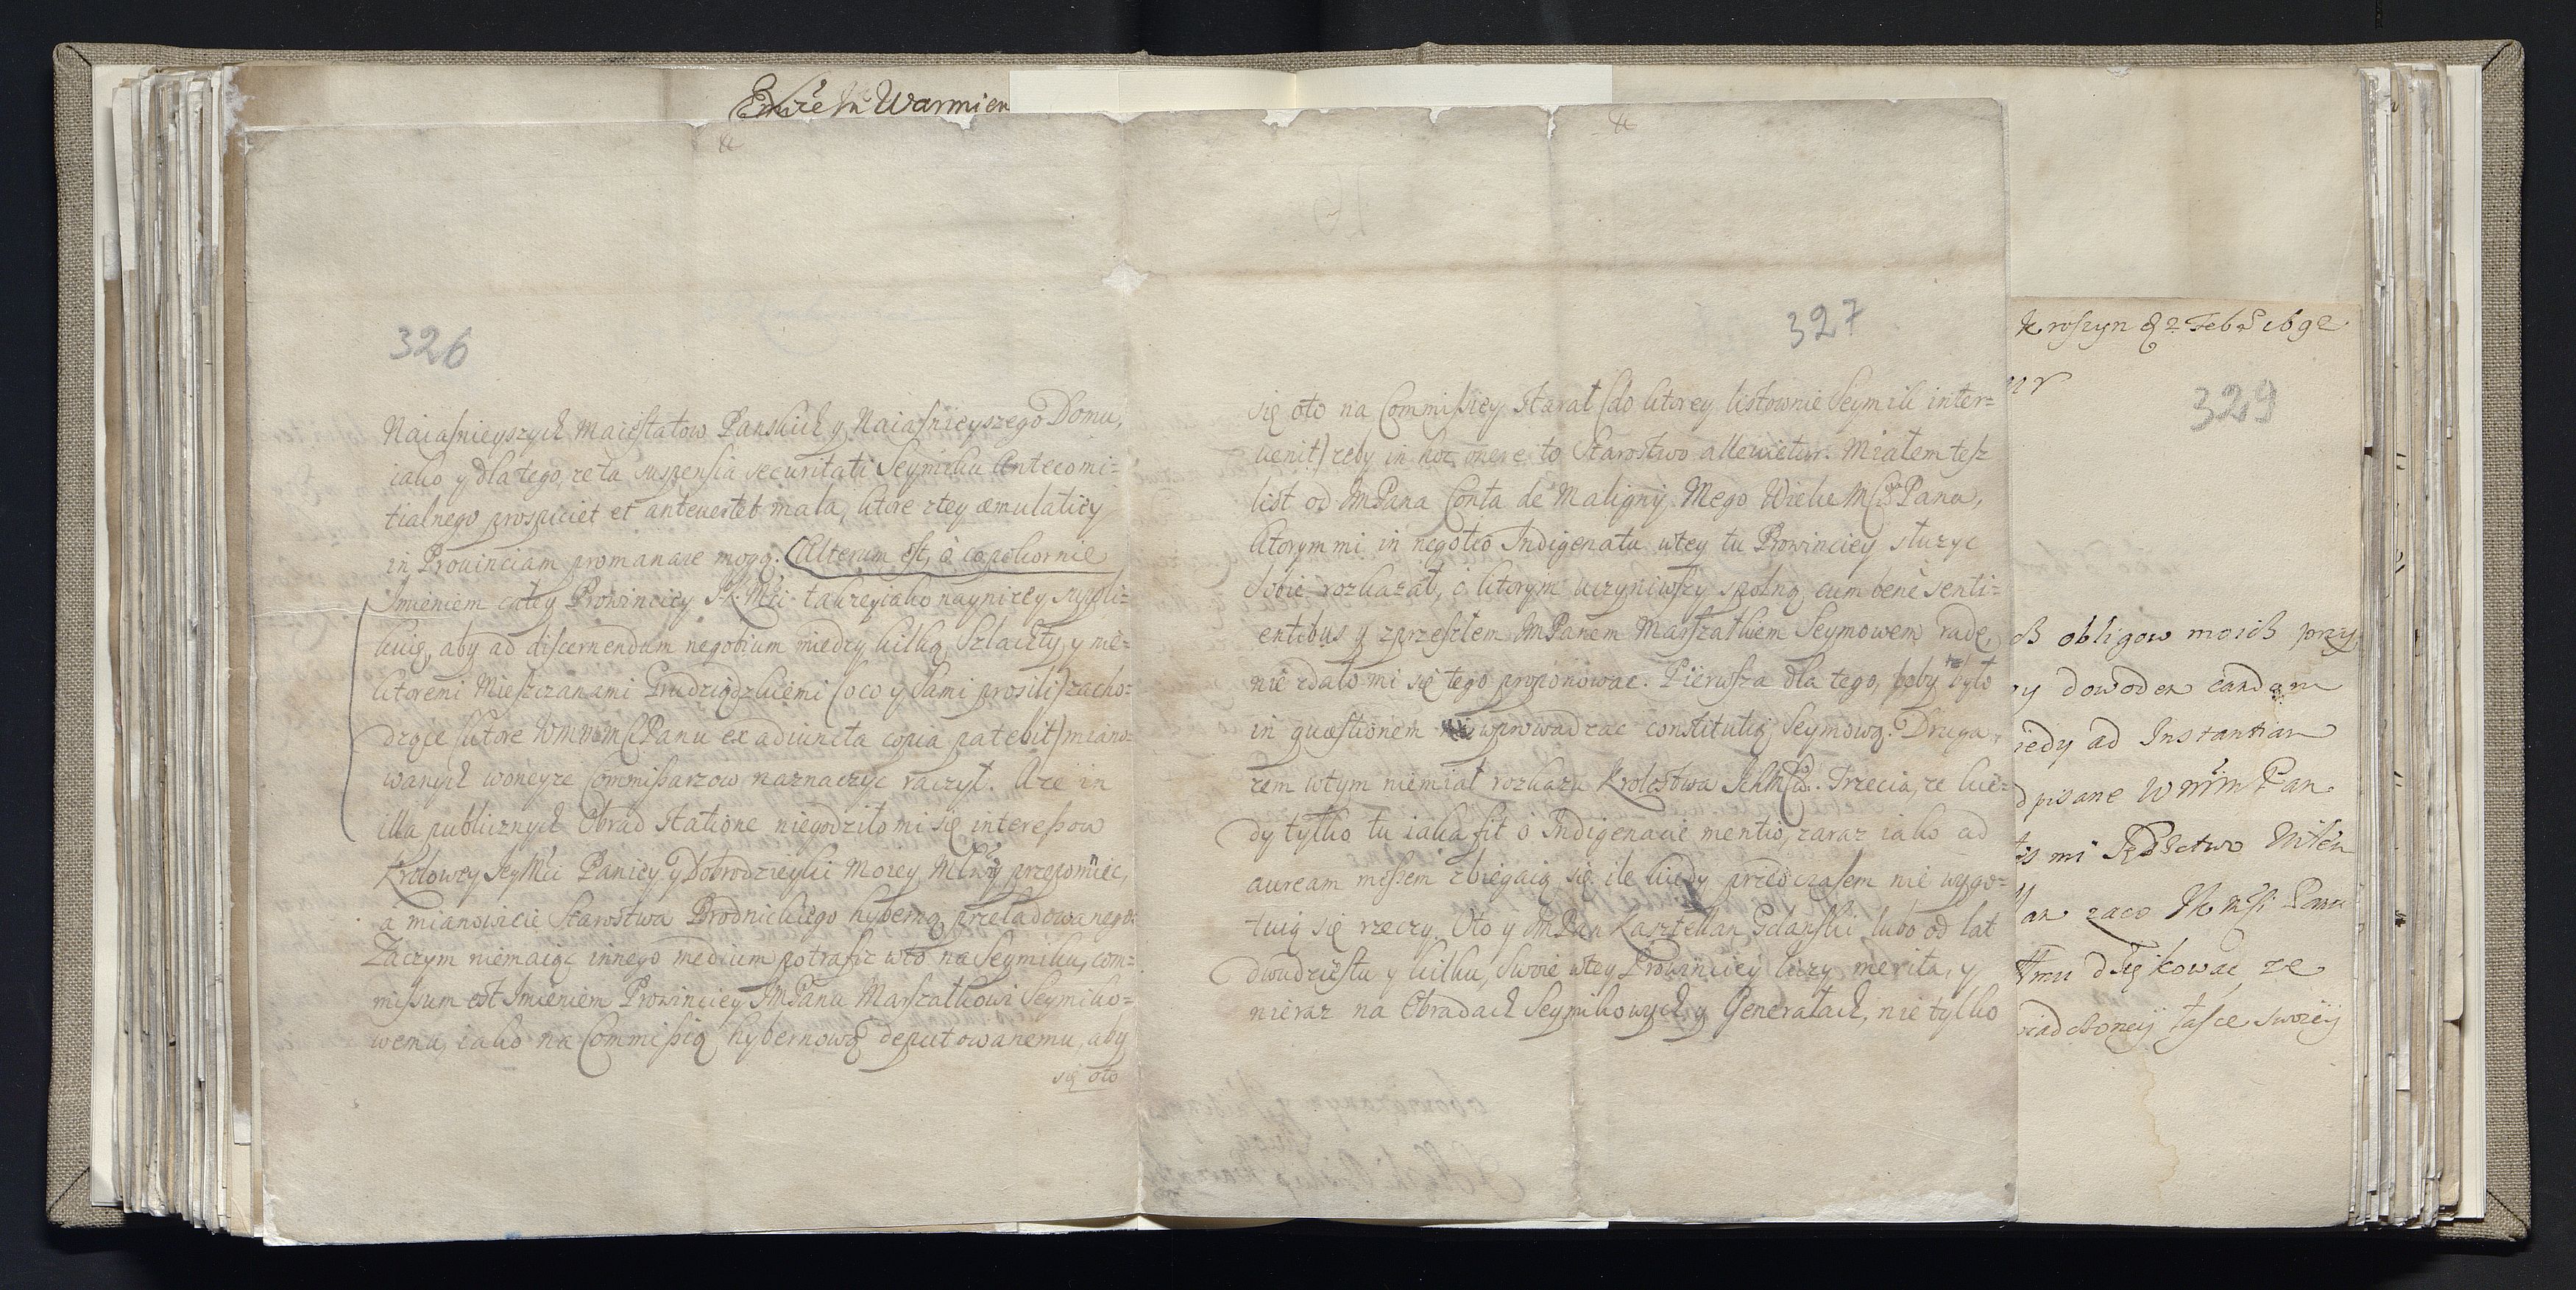 Warmien
326
Naiasnieyszych Maiestatow Panskich y Naiasnieyszego Domu,
iako y dla tego, ze ta suspensia securitati Seymiku Antecomi=
tialnego prospiciet et antevertet mala, ktore z tey æmulatiey
in Provinciam promanare mogą. Alterum est, o co pokornie
Imieniem całey Prowinciey JK. Mci takze iako nayniżey suppli=
kuię, aby ad discernendum negotium miedzy kilką Szlachty, y nie=
ktoremi Mieszczanami Grudziądzkiemi (o co y sami prosili) zacho=
dzące (ktore WMMMPanu ex adiuncta copia patebit) miano=
wanych w oneyze Commissarzow naznaczyć raczył. A ze in
illa publicznych Obrad statione niegodziło mi się interessow
Krolowey JeyMci Paniey y Dobrodzieyki moiey Młwy przepomniec,
a mianowicie Starostwa Brodnickiego hyberną przeładowanego.
Zaczym niemaiąc innego medium potrafic w to na Seymiku, com=
missum est Imieniem Prowinciey JMPanu Marszałkowi Seymiko=
wemu, iako na Commissią hybernową deputowanemu, aby
się oto
327
się oto na Commissiey starał (do ktorey listownie Seymik inter=
venit) zeby in hoc onere to Starostwo allevietur. Miałem tesz
list od JmPana Conta de Maligny Mego Wielce MPana,
ktorym mi in negotio Indigenatu w tey tu Prowinciey służyc
sobie rozkazał, o ktorym uczyniwszy spolną cum bene senti=
entibus y z przeszłem JmPanem Marszałkiem Seymowem radę,
nie zdało mi się tego proponowac. Pierwsza dla tego, zeby to było
in quæstionem wprowadzac constitutią Seymową. Druga,
zem w tym niemiał rozkazu Krolestwa Ichmciow. Trzecia, ze kie=
dy tylko tu iaka fit o Indigenacie mentio, zaraz iako ad
auream messem zbiegaią się ile kiedy przed czasem nie wygo=
tuią się rzeczy. Oto y JmPan Kasztellan Gdanski lubo od lat
dwudziestu y kilku, swoie w tey Prowinciey liczy merita, y
nieraz na Obradach Seymikowych y Generałach, nie tylko
Kroszyn d 2 Feb 1692
329
obligow moich przy
dowoden eandem
ad Instantiam
pisane WMM Pan
mi
zaco Pana
dziękować ze
łasce swoieij